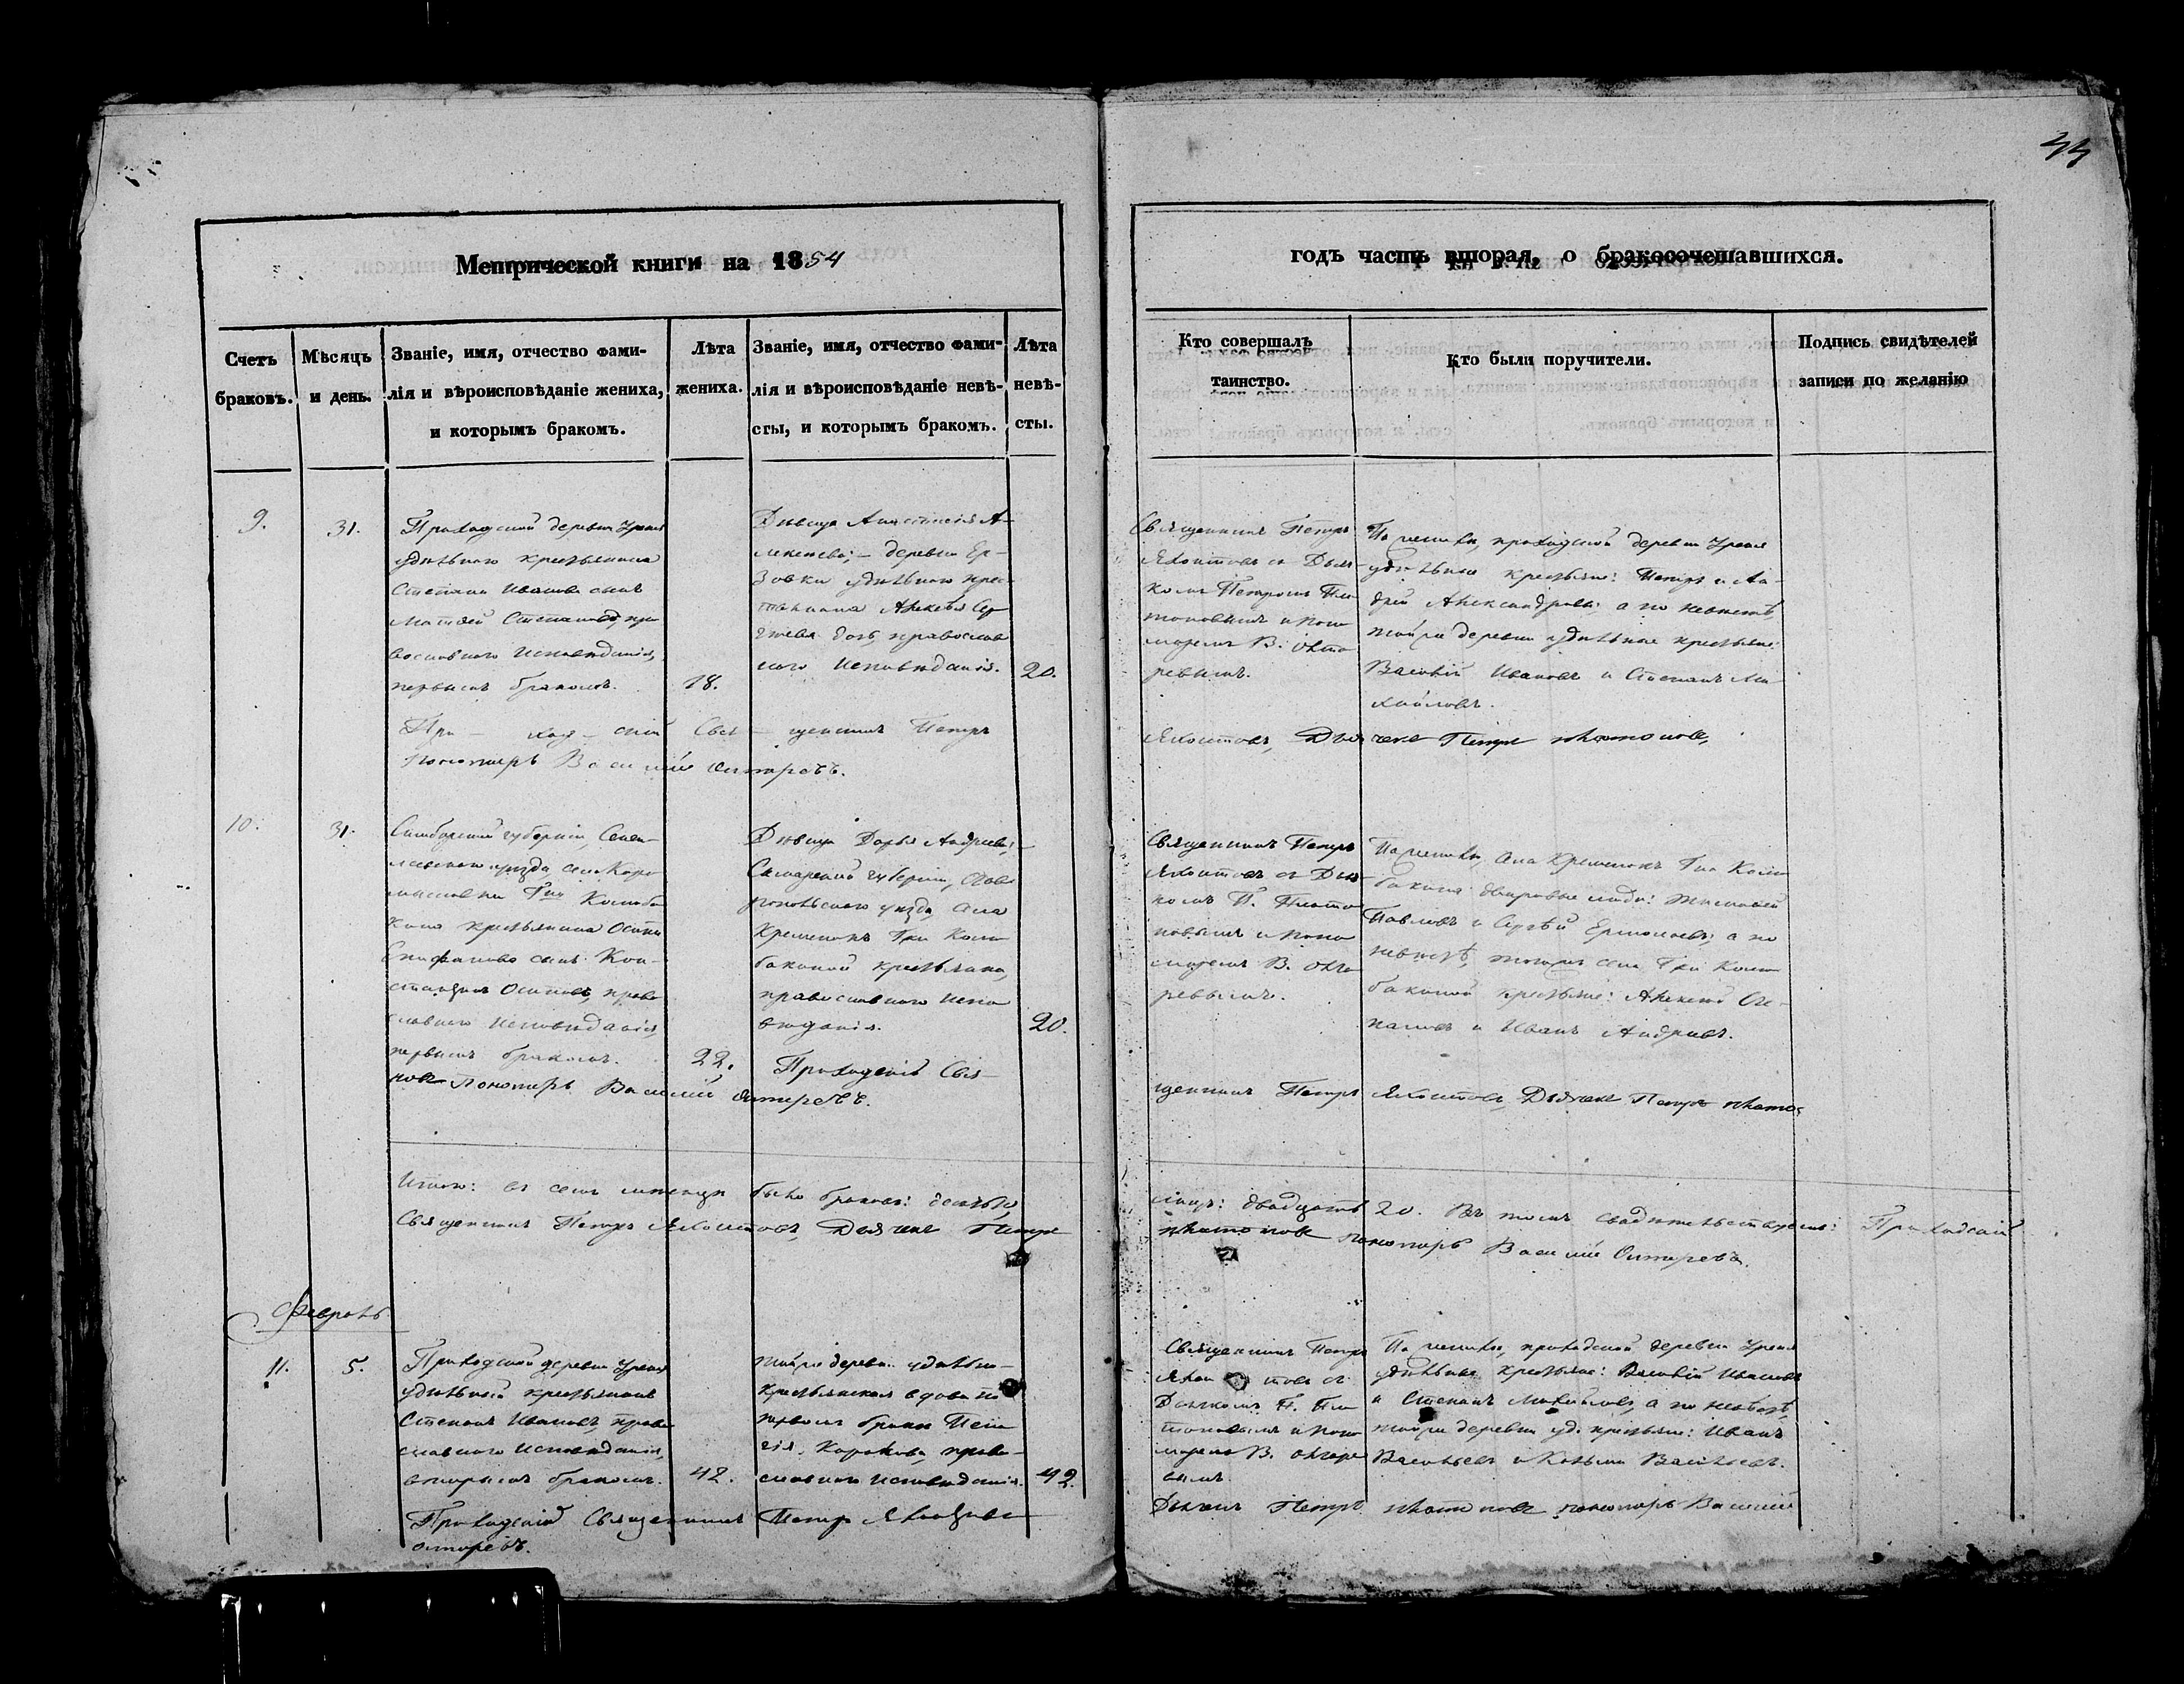 44
Метрической книги на 1854
годъ часть вторая, о бракосочетавшихся.
Счетъ браковъ.
Мѣсяцъ и день.
Званіе, имя, отчество фами-
лія и вѣроисповѣданіе жениха,
и которымъ бракомъ.
Лѣта
жениха.
Званіе, имя, отчество фами-
лія и вѣроисповѣданіе невѣ-
сты, и которымъ бракомъ.
Лѣта
невѣ-
сты.
Кто совершалъ
таинство.
Кто были поручители.
Подпись свидѣтелей
записи по желанію
9.
31.
Приходской деревни
удѣльнаго крестьянина
Степана Иванова сынъ
Матвей Степановъ, пра
вославнаго исповѣданія,
первымъ бракомъ.
18.
Дѣвица Анастасія А-
лексѣева; деревни Ер-
зовки удѣльнаго крес-
тьянина Алексѣя Сер
гѣева дочь, православ
наго исповѣданія.
20.
Священникъ Петръ
съ Дьяч
комъ Петромъ Пла
тоновымъ и поно
маремъ В. Окта
ревымъ.
По женихѣ, приходской деревни
удѣльные крестьяне: Петръ и Ан-
дрей Александровы; а по невѣстѣ,
той же деревни удѣльные крестьяне:
Василій Ивановъ и Степанъ Ми
хайловъ.
При - ход - скій Свя - щенникъ Петръ
Дьячекъ Петръ Платоновъ,
Пономарь Василій
10.
31.
Симбирской губерніи, Сенги-
леевскаго уѣзда, села
Гна
крестьянина Осипа
Епифанова сынъ Кон-
стантинъ Осиповъ, право
славнаго исповѣданія,
первымъ бракомъ.
22.
Дѣвица Дарья Андреева;
Самарской губерніи, Став
ропольскаго уѣзда, села
Кременокъ Гжи
крестьянка,
православнаго испо
вѣданія.
20.
Священникъ Петръ
съ Дьяч
комъ П. Плато
новымъ и поно
маремъ В. Окта
ревымъ.
По женихѣ, села Кременокъ Гна
дворовые люди:
Павловъ и Сергѣй Ермолаевъ; а по
невѣстѣ, тогоже села Гжи
крестьяне: Алексѣй Сте-
пановъ и Иванъ Андреевъ.
Приходскій Свя-
щенникъ Петръ Дьячекъ Петръ Плато-
новъ Пономарь Василій
Итого: въ семъ мѣсяцѣ было браковъ: десять,
лицъ: двадцать 20. Въ томъ свидѣтельствуемъ: Приходскій
Священникъ Петръ Дьячекъ Петръ
Платоновъ Пономарь Василій
Февраль
11.
5.
Приходской деревни
удѣльный крестьянинъ
Степанъ Ивановъ, право
славнаго исповѣданія,
вторымъ бракомъ.
42.
Той же деревни удѣльно-
крестьянская вдова по
первомъ бракѣ
право-
славнаго исповѣданія.
42.
Священникъ Петръ
съ
Дьячкомъ П. Пла
тоновымъ и поно
маремъ В. Октаре
вымъ.
По женихѣ, приходской деревни
удѣльные крестьяне: Василій Ивановъ
и Степанъ Михайловъ, а по невѣстѣ,
той же деревни уд. крестьяне: Иванъ
Васильевъ и Козьма Васильевъ.
Приходскій Священникъ Петръ
Дьячекъ Петръ Платоновъ пономарь Василій